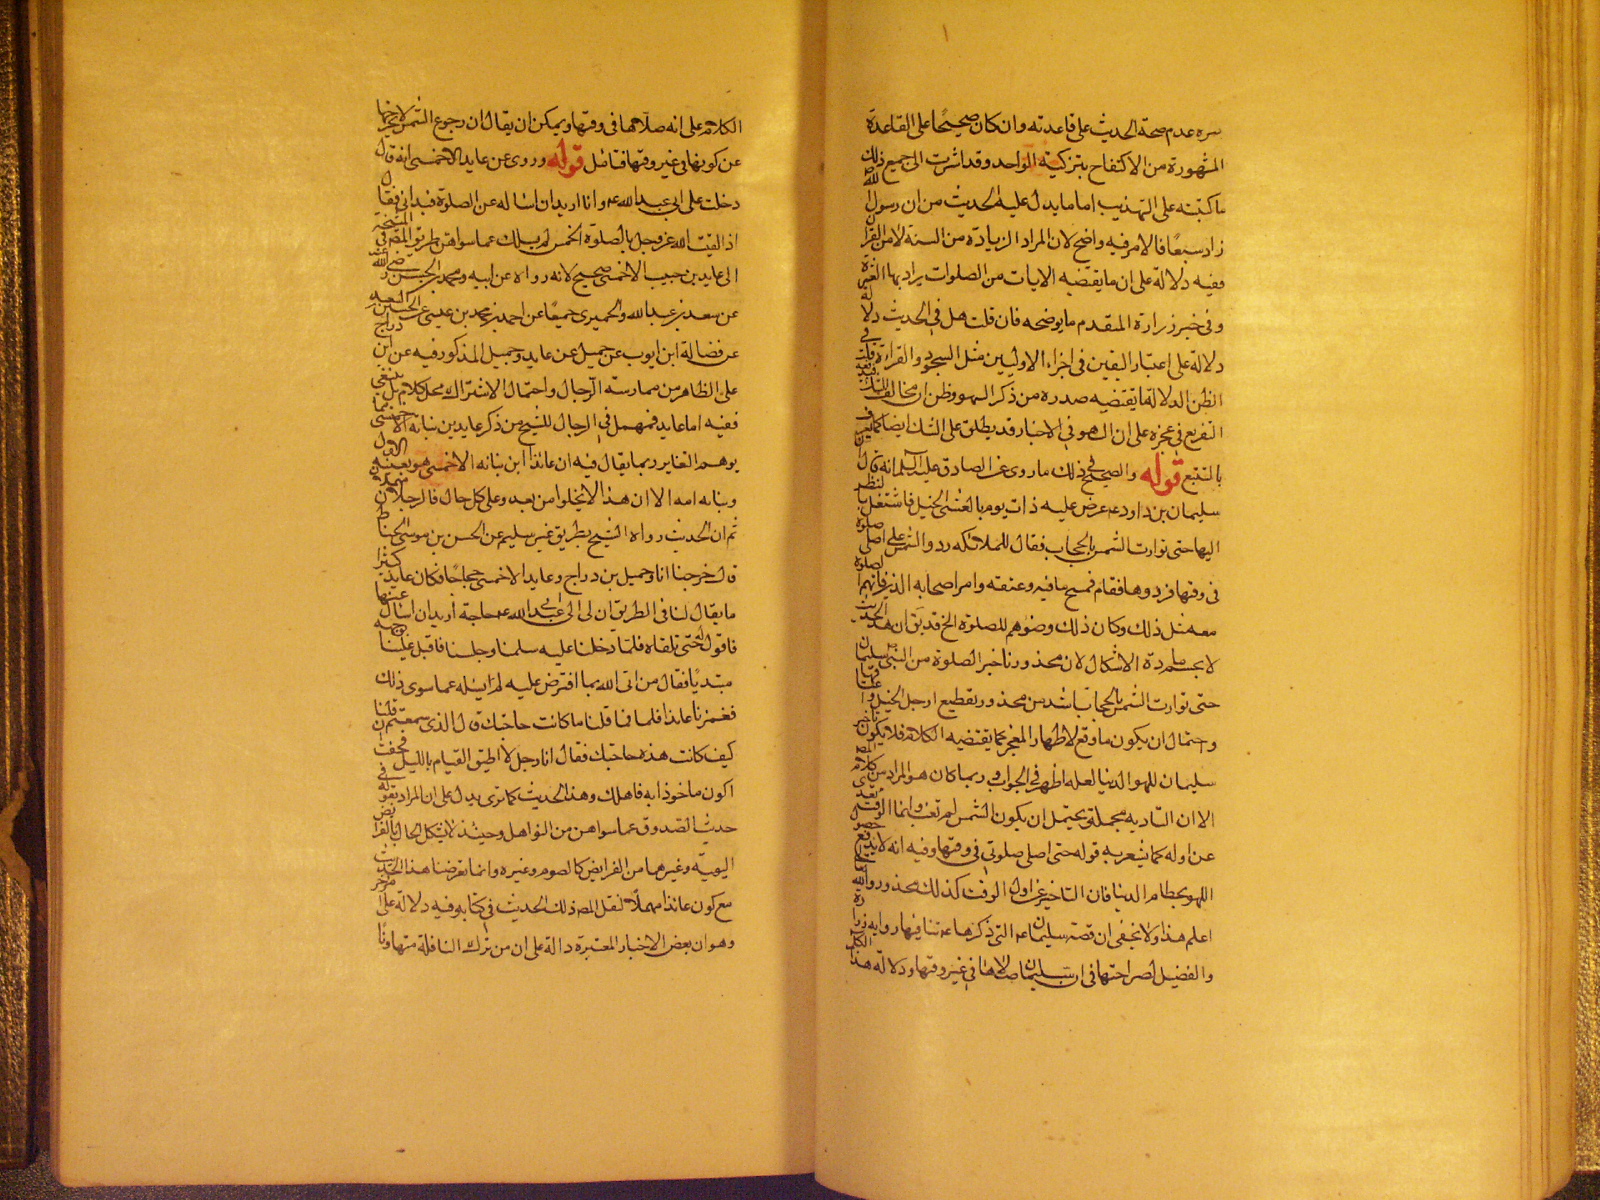 سره عدم صحة الحديث على قاعدته وان كان صحيحًا على القاعدة
المشهورة من الاكتفاح بتزكية الواحد وقد اشرت الى جميع ذلك
ما كتبته على التهذيب اما ما يدل عليه الحديث من ان رسول الله
زاد سبعًا فالامر فيه واضح لان المراد الزيادة من السنة لا من القرآن
ففيه دلالة على ان ما يقتضيه الايات من الصلوات يراد بها
وفى خبر زرارة المتقدم ما يوضحه فان قلت هل في الحديث دلا
دلالة على اعتبار اليقين فى اجزاء الاوليين مثل السجود والقراءة
الظن الدلالة ما يقتضيه صدره من ذكر السهو وظن ان
التفريع في عجزه على ان السهو في الاخبار قد يطلق على الشك ايضا كما
بالتتبع قوله والصحيح في ذلك ما روى عن الصادق عليه السلم انه قال
سليمان بن داود عه عرض عليه ذات يوم بالعشى الخيل فاشتغل بالنظر
اليها حتى توارت الشمس بالحجاب فقال للملائكه ردوا الشمس على اصلى صلوة
فى وقتها فردوها فقام فمسح ساقيه وعنقه وامر اصحابه الذين فاتتهم الصلوة
معه مثل ذلك وكان ذلك وضؤهم للصلوة الخ قد يق ان هذا الحديث
لا يحسم مادة الاشكال لان محذورنا خبر الصلوة من النبي سليمان
حتى توارت الشمس بالحجاب باشد من محذور تقطيع ارجل الخيل
واحتمال ان يكون ما وقع لاظهار المعجز كما يقتضيه الكلام فلا يكون
سليمان للهو الدنيا لعله اظهر في الجواب وربما كان هو المراد من كلام
الا ان التاديه مجملة ويحتمل ان يكون الشمس لم تغب وانما
عن اوله كما يشعر به قوله حتى اصلى صلوتي في وقتها وفيه انه لا يدفع
اللهو بحطام الدنيا فان التاخير عن اول الوقت كذلك محذور والله
اعلم هذا ولا يخفى ان قصة سليمان عه التى ذكرها عه تنافيها رواية زرارة
والفضيل لصراحتها فى ان سليمان صلاها في غير وقتها ودلالة هذا
الكلام على انه صلاها فى وقتها ويمكن ان يقال ان رجوع الشمس لا يخرجها
عن كونها في غير وقتها فتامل قوله وروى عن عايد الاحمسى انه قال
دخلت على ابى عبد الله عه وانا اريد ان اساله عن الصلوة فبدانى فقال
اذا لقيت الله عز وجل بالصلوة الخمس لم يسلك عما سواهن طريق المص فى المشيخة
الى عايد بن حبيب الاحمسى صحيح لانه رواه عن ابيه ومحمد بن الحسن رضى الله
عن سعد بن عبد الله والحميرى جميعًا عن احمد بن محمد بن عيسى عن الحسين
عن فضالة ابن ايوب عن جميل عن عايد وجميل المذكور فيه عن ابن دراج
على الظاهر من ممارسة الرجال واحتمال الاشتراك محل كلام بل ينبغى
ففيه اما عايد فمهمل في الرجال للشيخ من ذكر عايد بن نباته الاحمسى
يوهم التغاير ربما يقال فيه ان عائذا ابن نباته الاحمسى هو بعينه الاول
ونباته امه الا ان هذا لا يخلوا من بعد وعلى كل حال فالرجلان
ثم ان الحديث رواه الشيخ بطريق غير سليم عن الحسن بن موسى الحناط
قال خرجنا انا وجميل بن دراج وعايد الاحمسى حجاجًا فكان عايد كثيرا
ما يقال لنا فى الطريق ان لى الى ابى عبد الله عه حاجة اريدان اسال عنها
فاقول له حتى تلقاه فلما دخلنا عليه سلمنا وجلسنا فاقبل علينا بوجهه
مبتديًا فقال من اتى الله بما افترض عليه لم يسئله عما سوى ذلك
فغمزنا عايذا فلما قمنا قلنا ما كانت حاجتك قال الذى سمعتم قلنا
كيف كانت هذه حاجتك فقال انا رجل لا اطيق القيام بالليل فخفت ان
اكون ماخوذا به فاهلك وهذا الحديث كما ترى يدل على ان المراد بقوله فى
حديث الصدوق عما سواهن من النوافل وحينئذ لا يشكل الحال بالفرائض
اليومية وغيرهما من الفرايض كالصوم وغيره وانما تعرضنا هذا الحديث
مع كون عائذا مهملًا لنقل المص ذلك الحديث في كتابه وفيه دلالة على
وهو ان بعض الاخبار المعتبرة دالة على ان من ترك النافلة متهاونًا